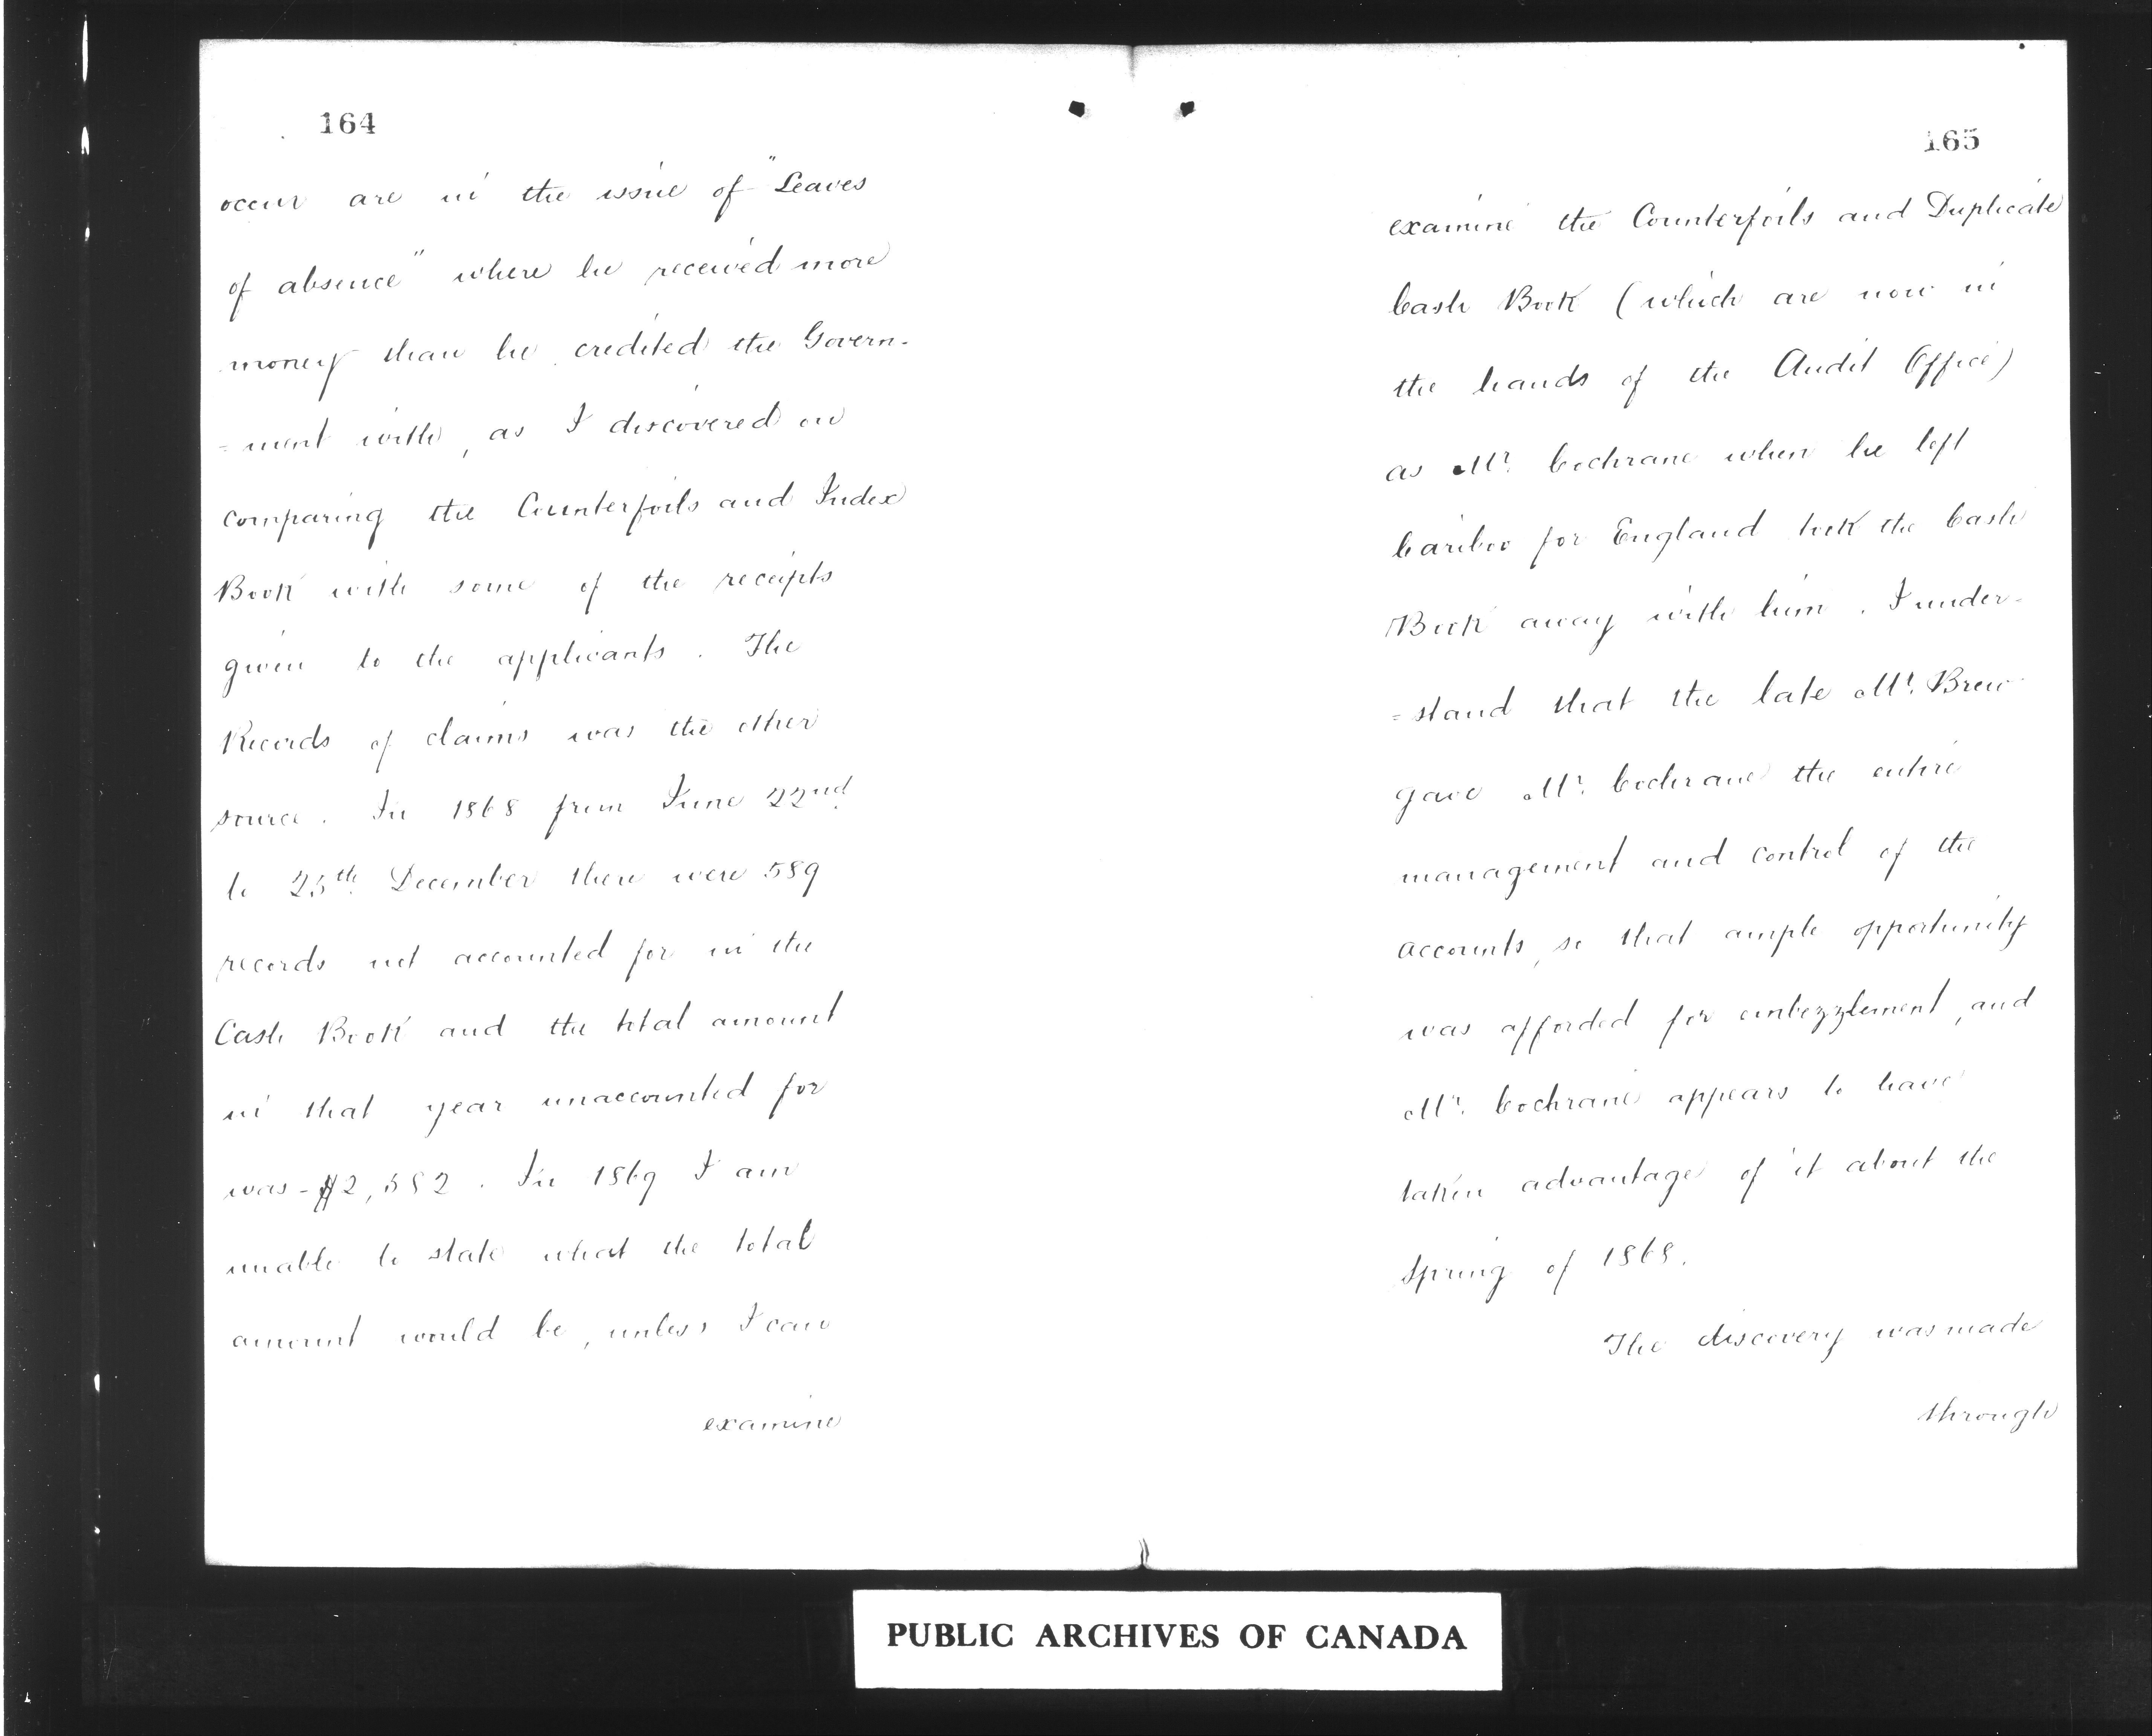 164
occur are in the issue of "Leaves
of absence" where he received more
money than he credited the Govern-
=ment with, as I discovered on
comparing the Counterfoils and Index
Book with some of the receipts
given to the applicants. The
Records of claims was the other
source. In 1868 from June 22nd
to 25th December there were 589
records not accounted for in the
Cash Book and the total amount
in that year unaccounted for
was - $2,582. In 1869 I am
unable to state what the total
amount would be, unless I can
examine
165
examine the Counterfoils and Duplicate
Cash Book (which are now in
the hands of the Audit Office)
as Mr. Cochrane when he left
Cariboo for England took the Cash
Book away with him. I under-
=stand that the late Mr. Brew
gave Mr. Cochrane the entire
management and control of the
accounts, so that ample opportunity
was afforded for embezzlement, and
Mr. Cochrane appears to have
taken advantage of it about the
Spring of 1868.
The discovery was made
through
PUBLIC ARCHIVES OF CANADA